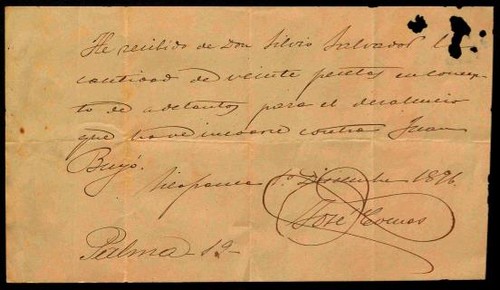 He recibido de Don Silvio Salvador la
cantidad de veinte pesetas en concep-
to de adelantos para el desahucio
que ha de incoarse contra Juan
Buyó.
1º Diciembre 1896.
José Comas
Palma 12